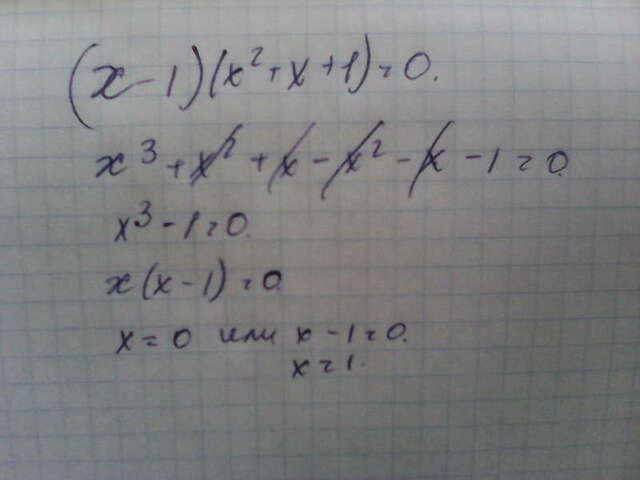 (x-1)(x²+x+1)=0.
x³+x²+x-x²-x-1=0.
x³-1=0.
x(x-1)=0
x=0 или x-1=0.
x=1.